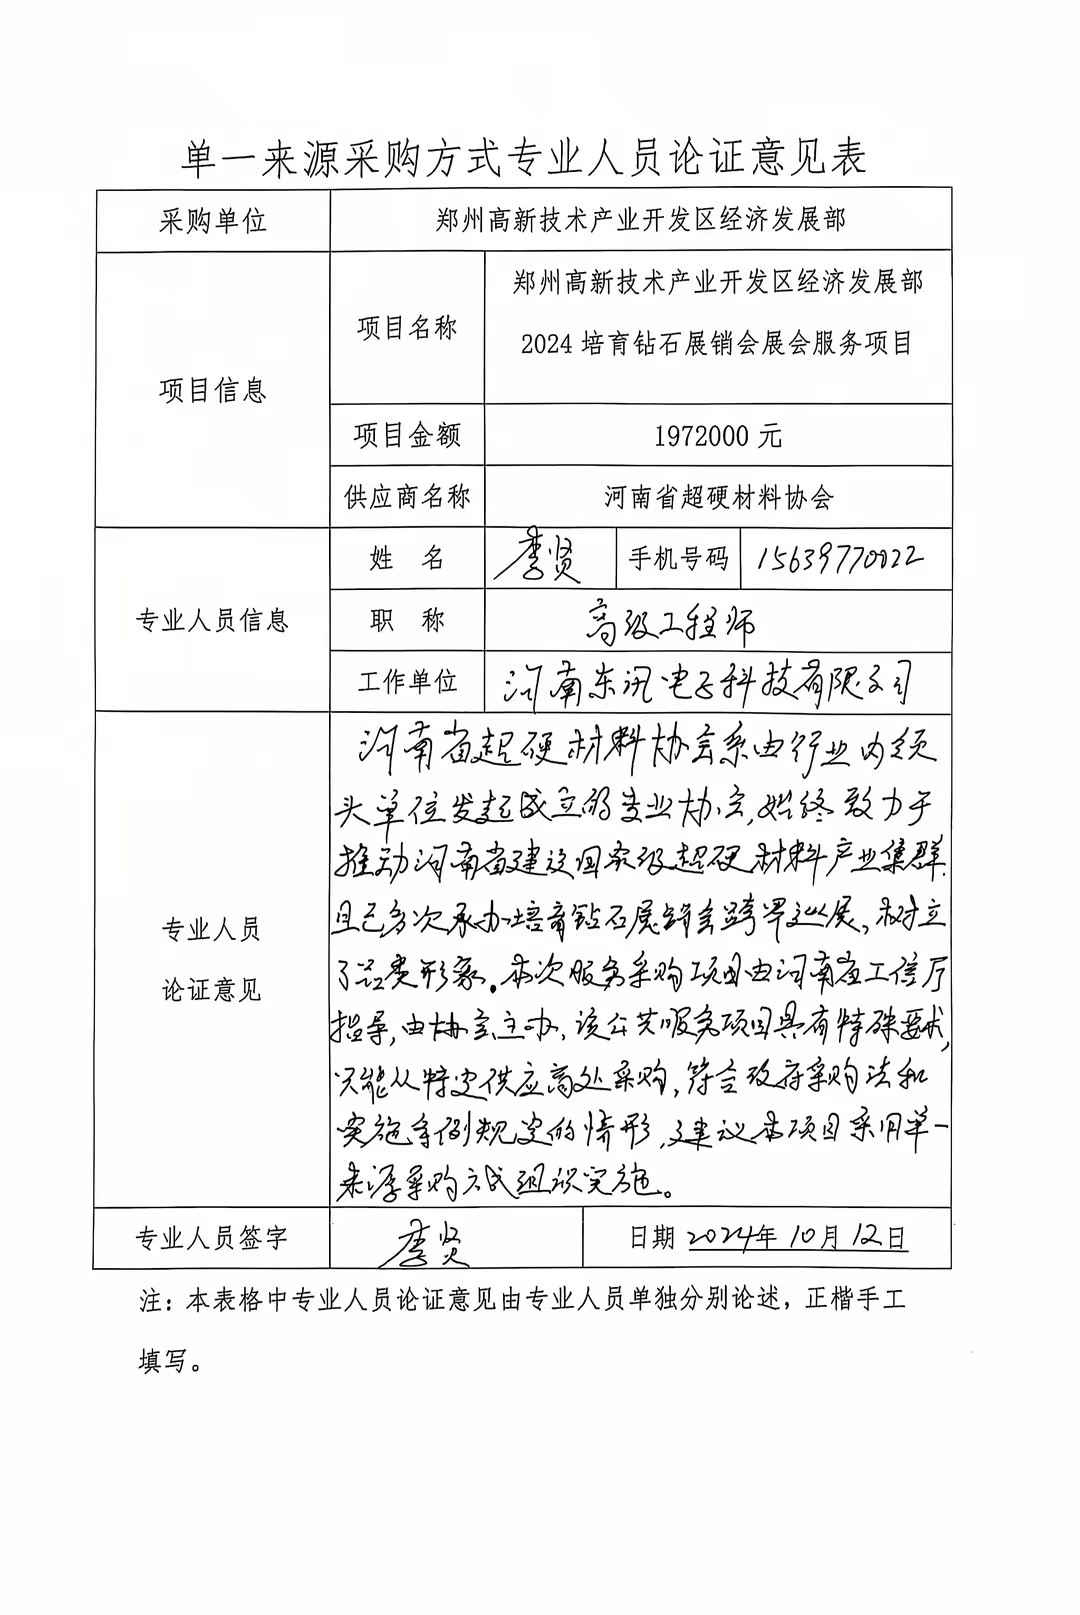 单一来源采购方式专业人员论证意见表
采购单位 郑州高新技术产业开发区经济发展部
项目信息
项目名称
郑州高新技术产业开发区经济发展部
2024培育钻石展销会展会服务项目
项目金额 1972000元
供应商名称 河南省超硬材料协会
专业人员信息
姓 名 李贤 手机号码 15639770022
职 称 高级工程师
工作单位 河南东讯电子科技有限公司
专业人员
论证意见
河南省超硬材料协会系由行业内领
头单位发起成立的专业协会,始终致力于
推动河南省建设国家级超硬材料产业集群,
且已多次承办培育钻石展销会跨界巡展,树立
了品类形象。本次服务采购项目由河南省工信厅
指导,由协会主办,该公共服务项目具有特殊要求,
只能从特定供应商处采购,符合政府采购法和
实施条例规定的情形,建议本项目采用单一
来源采购方式组织实施。
专业人员签字 李贤 日期 2024年10月12日
注：本表格中专业人员论证意见由专业人员单独分别论述，正楷手工
填写。